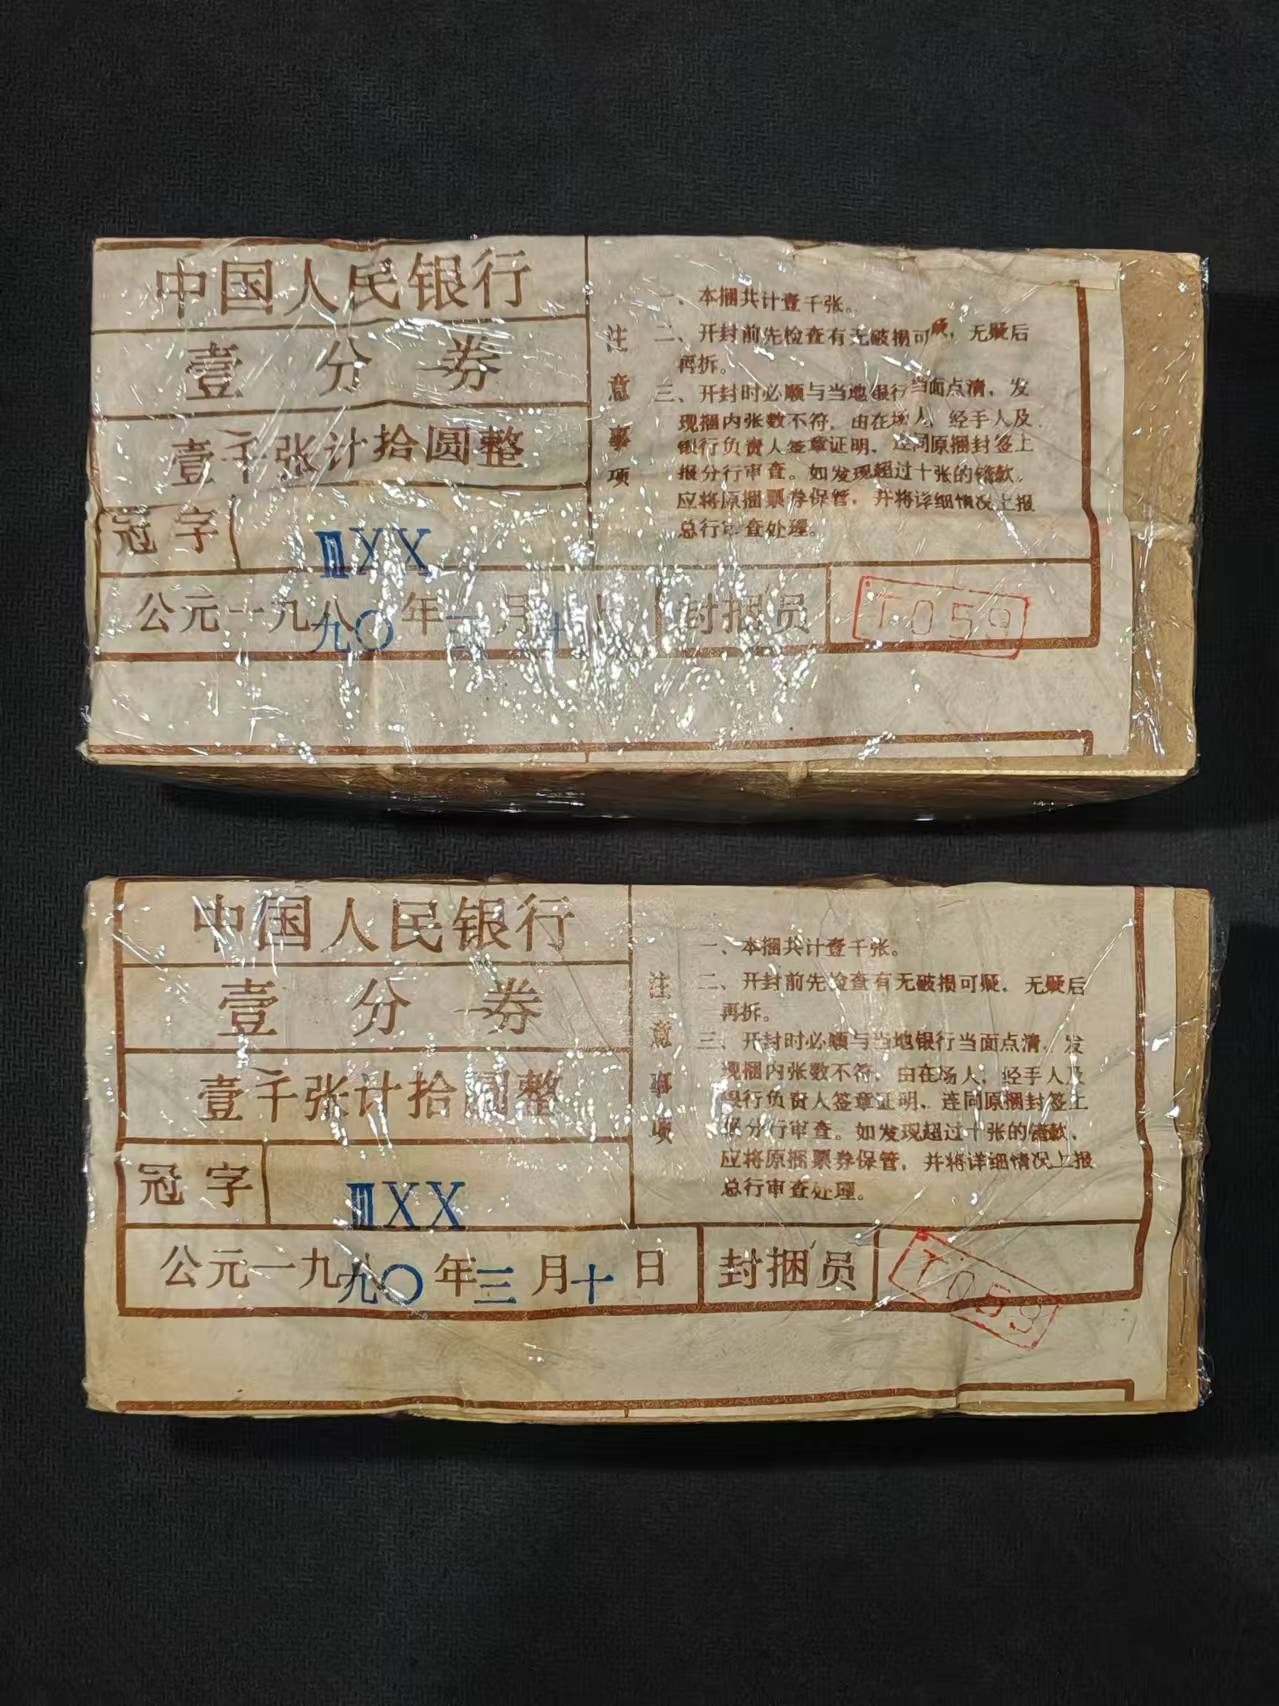 中国人民银行
壹分券
壹千张计拾圆整
冠字 ⅢXX
公元一九八九〇年三月十日 封捆员 T059
注意事项
一、本捆共计壹千张。
二、开封前先检查有无破损可疑，无疑后
再拆。
三、开封时必顺与当地银行当面点清，发
现捆内张数不符，由在场人，经手人及
银行负责人签章证明，连同原捆封签上
报分行审查。如发现超过十张的错款，
应将原捆票券保管，并将详细情况上报
总行审查处理。
中国人民银行
壹分券
壹千张计拾圆整
冠字 ⅢXX
公元一九九〇年三月十日 封捆员 T059
注意事项
一、本捆共计壹千张。
二、开封前先检查有无破损可疑，无疑后
再拆。
三、开封时必顺与当地银行当面点清，发
现捆内张数不符，由在场人，经手人及
银行负责人签章证明，连同原捆封签上
报分行审查。如发现超过十张的错款，
应将原捆票券保管，并将详细情况上报
总行审查处理。